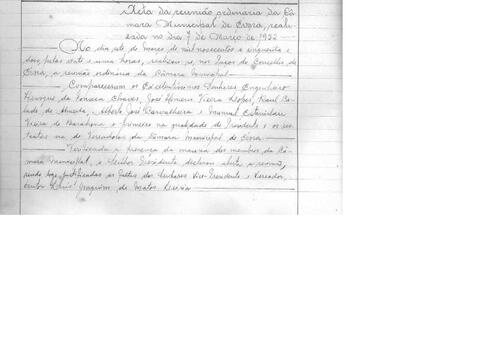 Acta da reunião ordinaria da Câ-
mara Municipal de Evora, reali-
zada no dia 7 de Março de 1952
No dia sete de março de mil novecentos e cinquenta e
dois, pelas vinte e uma horas, realizou-se, nos Paços do Concelho de
Evora, a reunião ordinária da Câmara Municipal.
Compareceram os Excelentissimos Senhores Engenheiro
Henrique da Fonseca Chaves, José Homem Vieira Raul
de Almeida, Alberto José e Manuel Estanislau
Vieira de Barahona o primeiro na qualidade de Presidente e os res-
tantes na de Vereadores da Câmara Municipal de Evora.
Verificada a presença da maioria dos membros da Câ-
mara Municipal, o Senhor Presidente declarou aberta a reunião,
sendo justificadas as faltas dos Senhores Vice-Presidente e Vereador
Joaquim de Matos